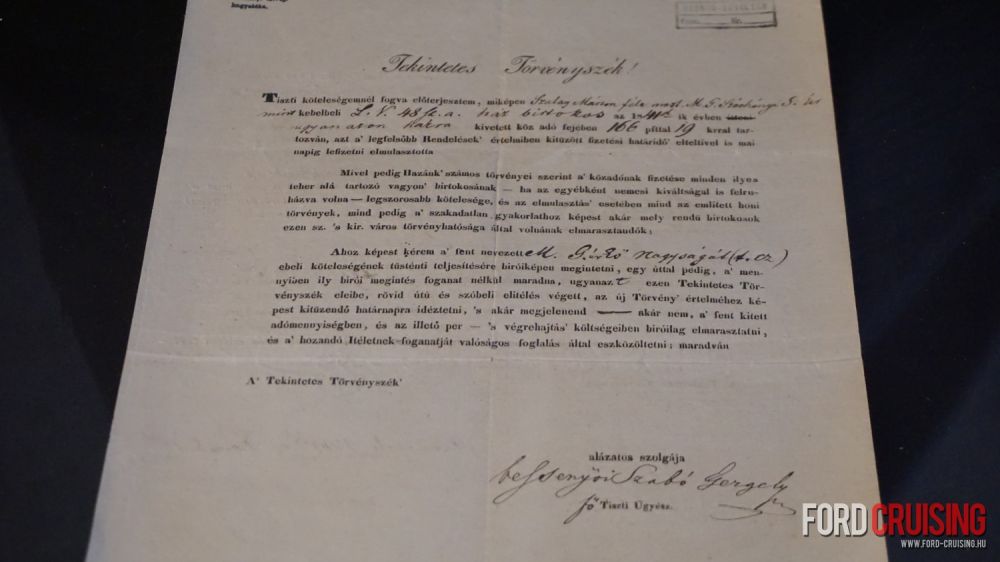 hagyatéka.
Tekintetes Törvényszék!
Tiszti kötelességemnél fogva előterjesztem, miképen
mint kebelbeli L. V. 48 sz. a. ház birtokos az 184 ik évben
ugyan azon házra kivetett köz adó fejében 166 pfttal 19 krral tar-
tozván, azt a' legfelsőbb Rendelések' értelmiben kitüzött fizetési határidő' elteltivel is mai
napig lefizetni elmulasztotta
Mivel pedig Hazánk' számos törvényei szerint a' közadónak fizetése minden ilyes
teher alá tartozó vagyon' birtokosának — ha az egyébként nemesi kiváltságal is felru-
házva volna — legszorosabb kötelesége, és az elmulasztás' esetében mind az említett honi
törvények, mind pedig a' szakadatlan gyakorlathoz képest akár mely rendü birtokosok
ezen sz. 's kir. város törvényhatósága által volnának elmarasztaudók;
Ahoz képest kérem a' fent nevezett M. nagyságát
ebeli kötelességének tüsténti teljesítésére birói képen megintetni, egy úttal pedig, a' men-
nyiben ily birói megintés foganat nélkül maradna, ugyanazt ezen Tekintetes Tör-
vényszék eleibe, rövid útú és szóbeli elitélés végett, az új Törvény' értelméhez ké-
pest kitüzendő határnapra idéztetni, 's akár megjelenend — akár nem, a' fent kitett
adómennyiségben, és az illető per — 's végrehajtás' költségeiben biróilag elmarasztatni,
és a' hozandó Itéletnek foganatját valóságos foglalás által eszközöltetni; maradván
A' Tekintetes Törvényszék'
alázatos szolgája
bessenyői Szabó Gergely
fő Tiszti Ügyész.
FORD CRUISING
WWW.FORD-CRUISING.HU